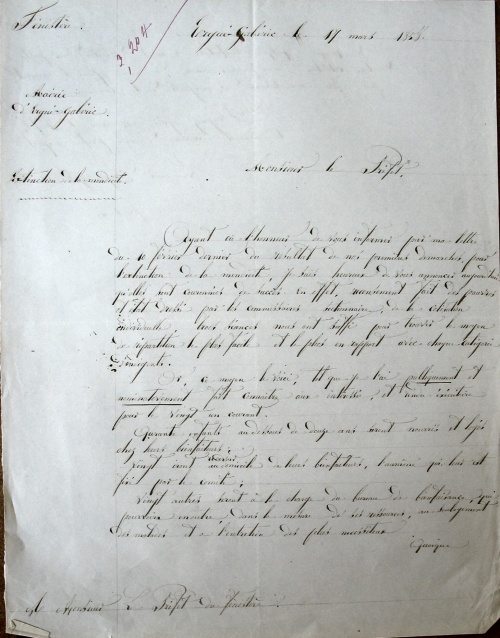 Finistère
2,204
Ergué-Gabéric le 17 mars 185
Mairie
d'Ergué-Gabéric.
Extinction de la mendicité.
Monsieur le Préfet.
Ayant eu l'honneur de vous informer par ma lettre
du 10 février dernier du résultat de nos premières démarches, pour
l'extinction de la mendicité, je suis heureux de vous annoncer aujourd'hui
qu'elles sont couronnées de succès. En effet, recensement fait des pauvres
et état dressé par les commissaires de la cotisation
individuelle, trois séances nous ont suffi pour trouver le moyen
de répartition le plus facile et le plus en rapport avec chaque catégorie
d'indigents.
Or, ce moyen le voici, tel que je l'ai publiquement et
fait connaître aux intéressés, et rendu exécutoire
pour le vingt un courant.
Quarante enfants au-dessous de douze ans seront nourris et logés
chez leurs bienfaiteurs.
Vingt iront chercher à domicile à leurs bienfaiteurs, l'aumône qui leur est
fixée par le comité.
Vingt autres seront à la charge du bureau de bienfaisance, qui
pourvoira ensuite, dans la mesure de ses ressources, au soulagement
des malades et à l'entretien des plus nécessiteux.
A Monsieur le Préfet du Finistère.